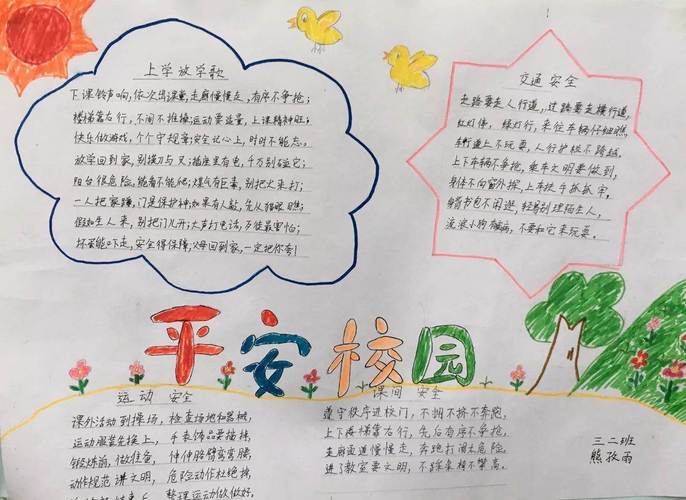 上学放学歌
下课铃声响,依次出课堂,走廊慢慢走,有序不争抢;
楼梯靠右行,不闹不推搡;运动要适量,上课精神旺;
快乐做游戏,个个守规章;安全记心上,时时不能忘。
放学回到家,别摸刀与叉;插座里有电,千万别碰它;
阳台很危险,能看不能爬;煤气有巨毒,别把火来打;
一人把家蹲,门是保护神;如果有人敲,先从猫眼瞧;
假如生人来,别把门儿开;大声打电话,歹徒最害怕;
坏蛋能吓走,安全得保障;父母回到家,一定把你夸!
交通安全
走路要走人行道,过路要走横行道,
红灯停,绿灯行,来往车辆仔细瞧,
车行道上不玩耍,人行护栏不跨越,
上下车辆不争抢,乘车文明要做到,
身体不向窗外探,上车扶手抓抓牢,
身背书包不闲逛,轻易别理陌生人,
流浪小狗有病,不要和它来玩耍。
平安校园
运动安全
课外活动到操场,检查场地和器械,
运动服装先换上,手表饰品要摘掉,
锻炼前,做准备,伸伸胳臂弯弯腰,
动作规范讲文明,危险动作杜绝掉,
整理运动做做好。
课间安全
遵守秩序进校门,不拥不挤不奔跑,
上下楼梯靠右行,先后有序不争抢,
走廊走道慢慢走,奔跑打闹太危险,
进了教室要文明,不踩桌椅不攀高。
三二班
熊孜雨